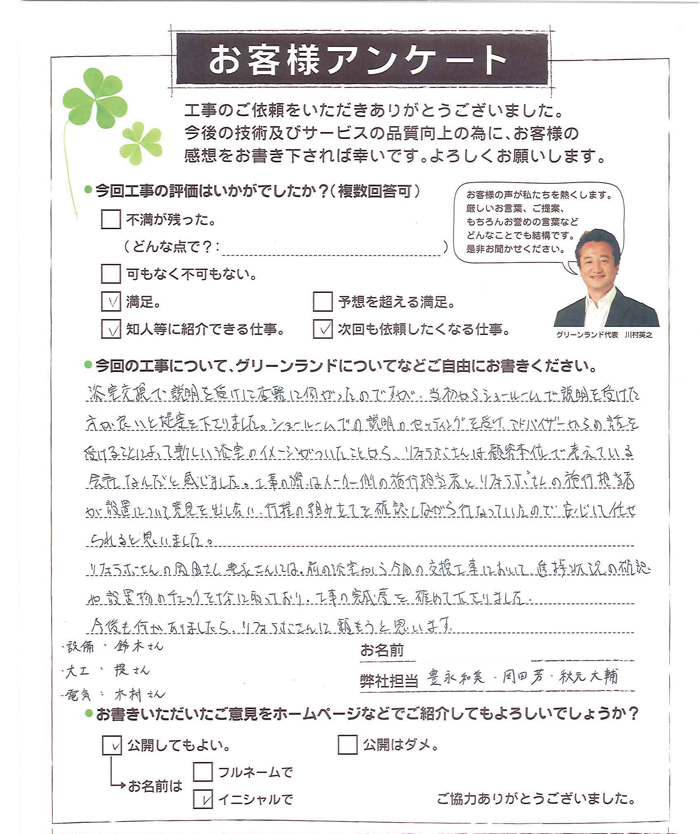 お客様アンケート
工事のご依頼をいただきありがとうございました。
今後の技術及びサービスの品質向上の為に、お客様の
感想をお書き下されば幸いです。よろしくお願いします。
●今回工事の評価はいかがでしたか？（複数回答可）
不満が残った。
（どんな点で？：　）
可もなく不可もない。
満足。
予想を超える満足。
知人等に紹介できる仕事。
次回も依頼したくなる仕事。
お客様の声が私たちを熱くします。
厳しいお言葉、ご提案、
もちろんお誉めの言葉など
どんなことでも結構です。
是非お聞かせください。
グリーンランド代表　川村英之
●今回の工事について、グリーンランドについてなどご自由にお書きください。
浴室交換で説明を受けに店舗に伺がったのですが、当初からショールームで説明を受けた
方が良いと提案を下さりました。ショールームでの説明のセッティングを受け、アドバイザーからの話を
受けることによって新しい浴室のイメージがついたことから、リフォらぼさんは顧客本位で考えている
会社なんだと感じました。工事の際はメーカー側の施行担当者とリフォらぼさんの施行担当者
が設置について意見を出し合い、行程の組み立てを確認しながら行なっていたので安心して任せ
られると思いました。
リフォらぼさんの岡田さん、豊永さんには、前の浴室から今回の交換工事において、進捗状況の確認
や設置物のチェックを十分に取っており、工事の完成度を確めて下さりました。
今後も何かありましたら、リフォらぼさんに頼もうと思います。
・設備：鈴木さん
・大工：提さん
・電気：木村さん
お名前
弊社担当　豊永和美・岡田芳・秋元大輔
●お書きいただいたご意見をホームページなどでご紹介してもよろしいでしょうか？
公開してもよい。
公開はダメ。
お名前は
フルネームで
イニシャルで
ご協力ありがとうございました。